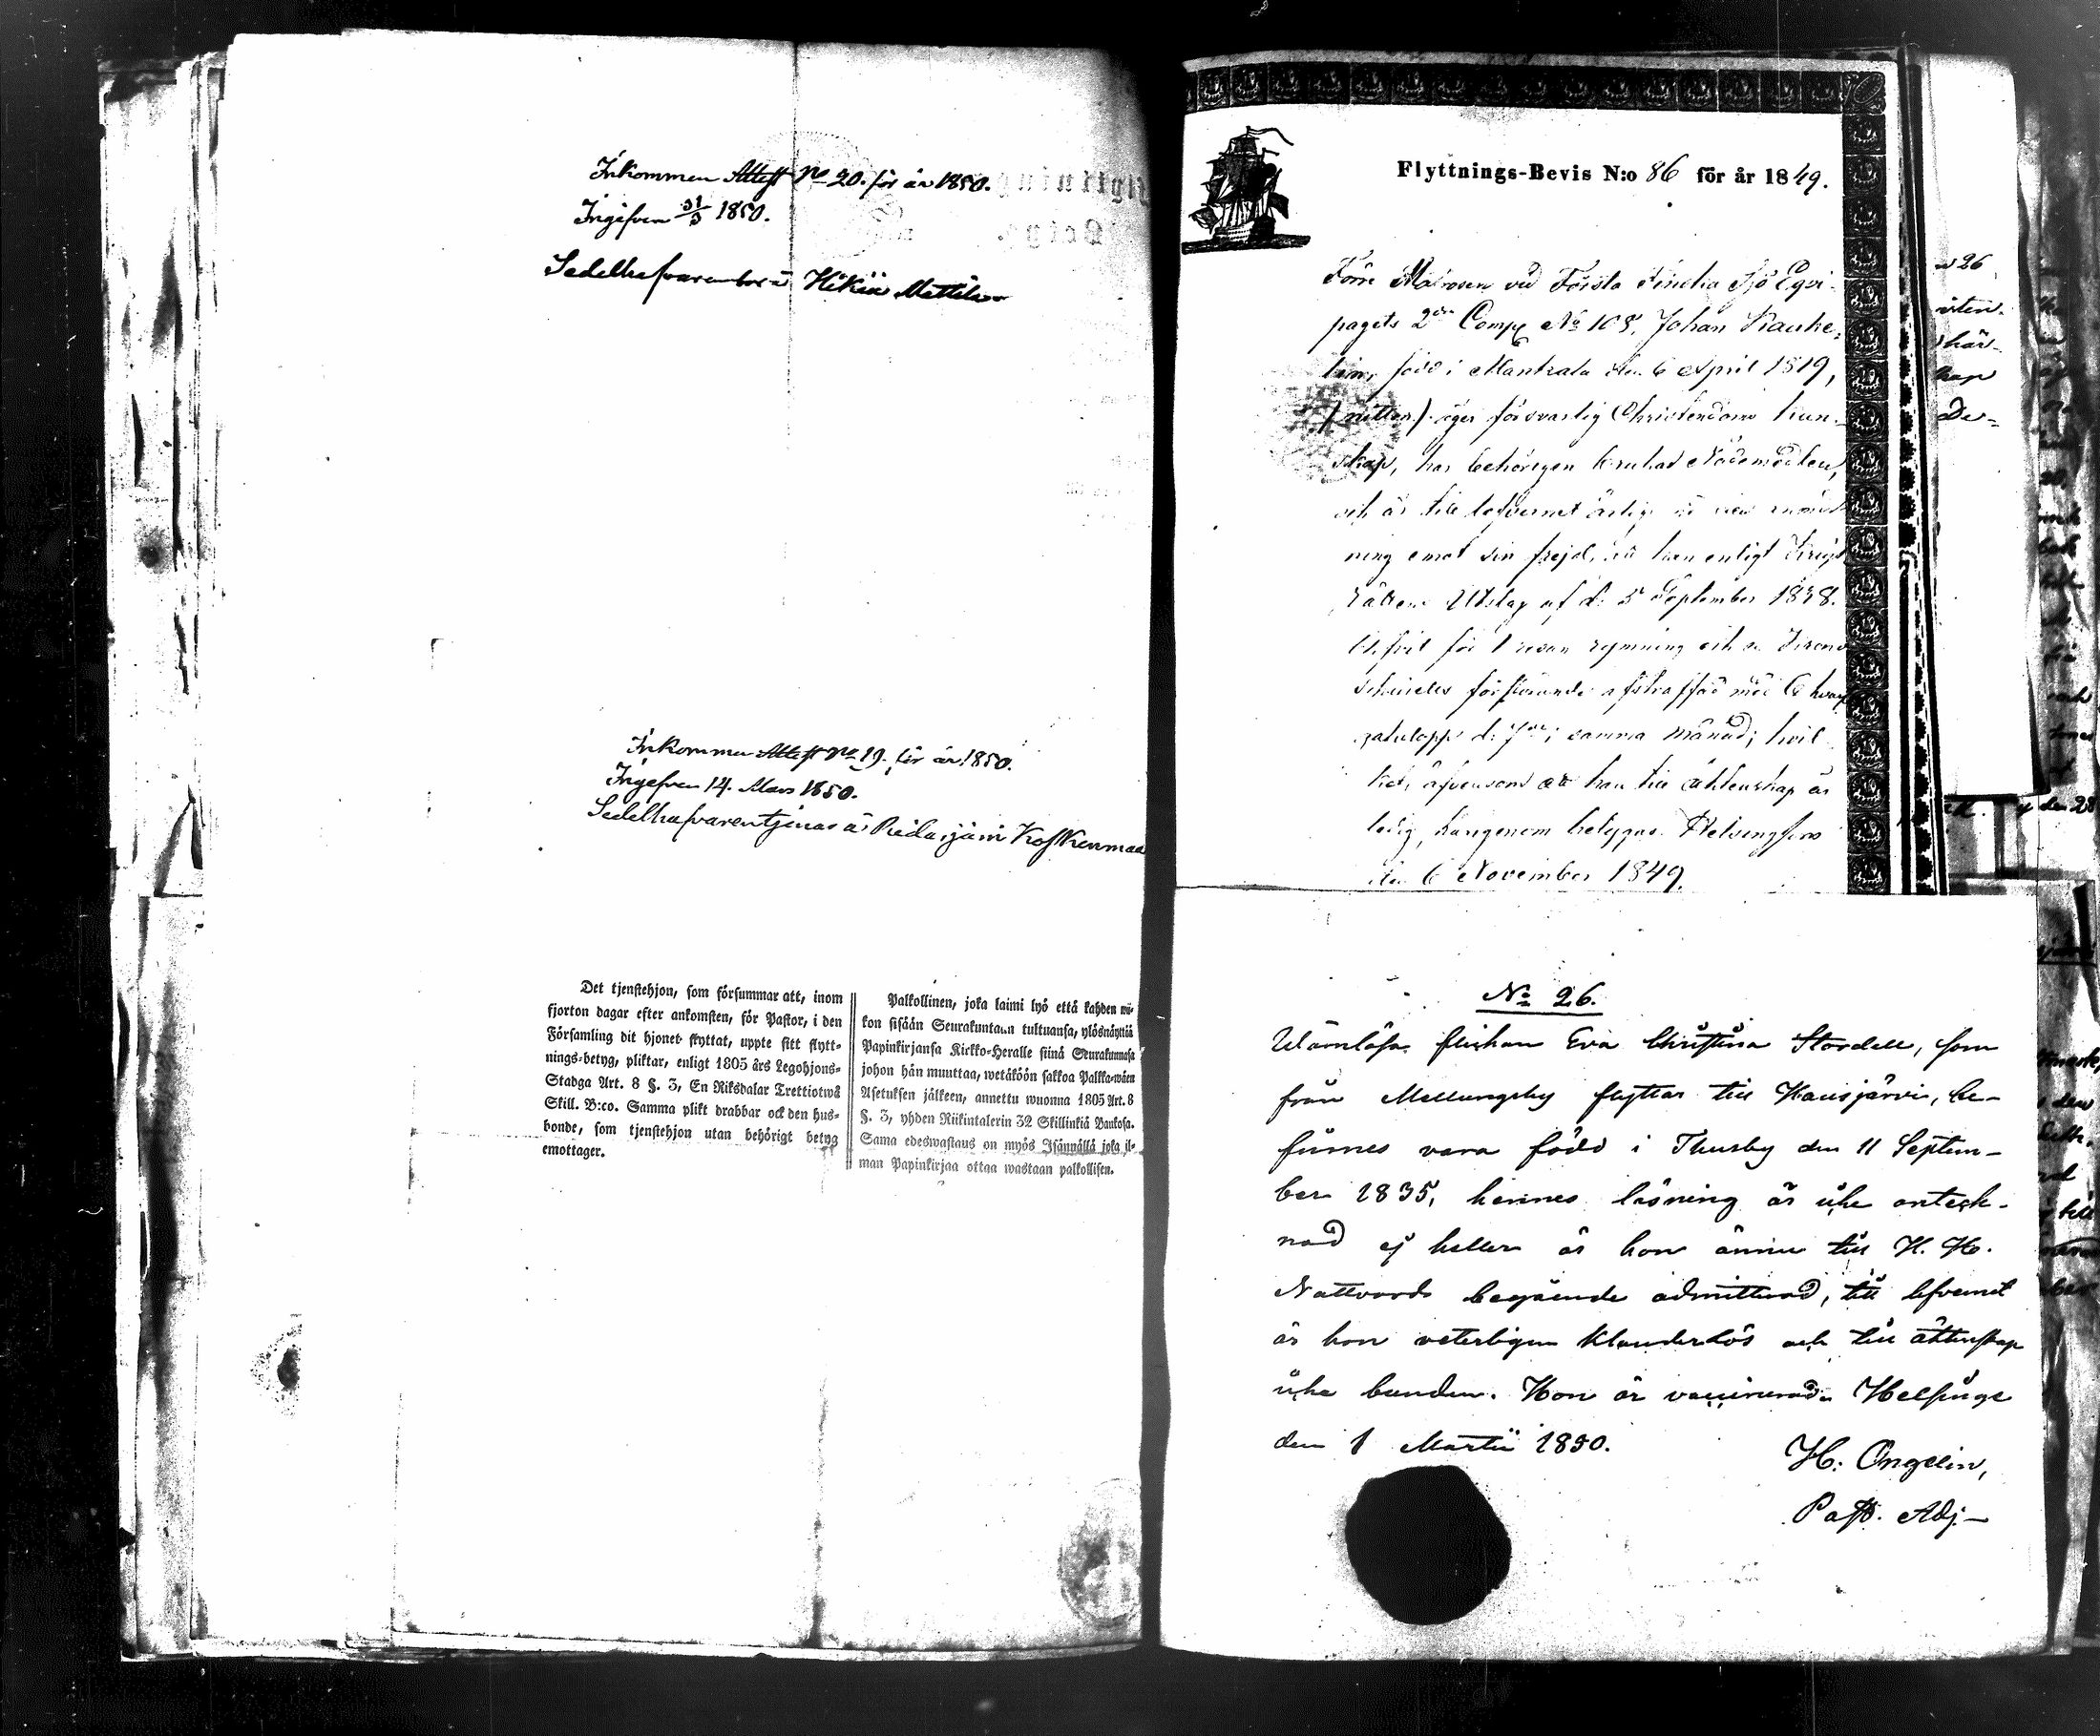 Inkommen Attest No 20. för år 1850.
Ingifven 31/3 1850.
Sedelhafvaren bor i Hikiä Mattila
Inkommen Attest No 19. för år 1850.
Ingefven 14. Mars 1850.
Sedelhafvaren tjenar å Ridasjärvi Koskenmaa
Det tjenstehjon, som försummar att, inom
fjorton dagar efter ankomsten, för Pastor, i den
Församling dit hjonet flyttat, uppte sitt flytt-
nings-betyg, pliktar, enligt 1805 års Legohjons-
Stadga Art. 8 §. 3, En Riksdalar Trettiotwå
Skill. B:co. Samma plikt drabbar ock den hus-
bonde, som tjenstehjon utan behörigt betyg
emottager.
Palkollinen, joka laimi lyö että kahden wii-
kon sisään Seurakuntaan tultuansa, ylösnäyttää
Papinkirjansa Kirkko-Heralle siinä Seurakunnasa
johon hän muuttaa, wetäköön sakkoa Palkka-wäen
Asetuksen jälkeen, annettu wuonna 1805 Art. 8
§. 3, yhden Riikintalerin 32 Skillinkiä Bankosa.
Sama edeswastaus on myös Isännällä joka il-
man Papinkirjaa ottaa wastaan palkollisen.
Flyttnings-Bevis N:o 86 för år 1849.
Förre Matrosen vid Första Finska Sjö Eqvi-
pagets 2dra Comp. No 108, Johan
född i Mankala den 6 April 1819,
(nitton), eger försvarlig Christendoms kun-
skap, har behörigen brukat Nådemedlen,
och är till lefvernet ärlig
ning emot sin frejd, att han enligt Krigs
Rättens Utslag af d. 5 September 1848.
blifvit för 1 resan rymning och
förskingrande afstraffad med 6 hvarf
gatulopp d. 7de i samma månad; hvil-
ket, äfvensom att han till äktenskap är
ledig, härigenom betygas. Helsingfors
den 6 November 1849.
No 26.
Wärnlösa flickan Eva Christina Stordell, som
från Mellungsby flyttar till Hausjärvi, be-
finnes vara född i Thusby den 11 Septem-
ber 1835, hennes läsning är icke anteck-
nad ej heller är hon ännu till H. H.
Nattvards begående admitterad, till lefvernet
är hon veterligen klanderlös och till äktenskap
icke bunden. Hon är vaccinerad. Helsinge
den 1 Martii 1850.
H. Ongelin,
Past. Adj.